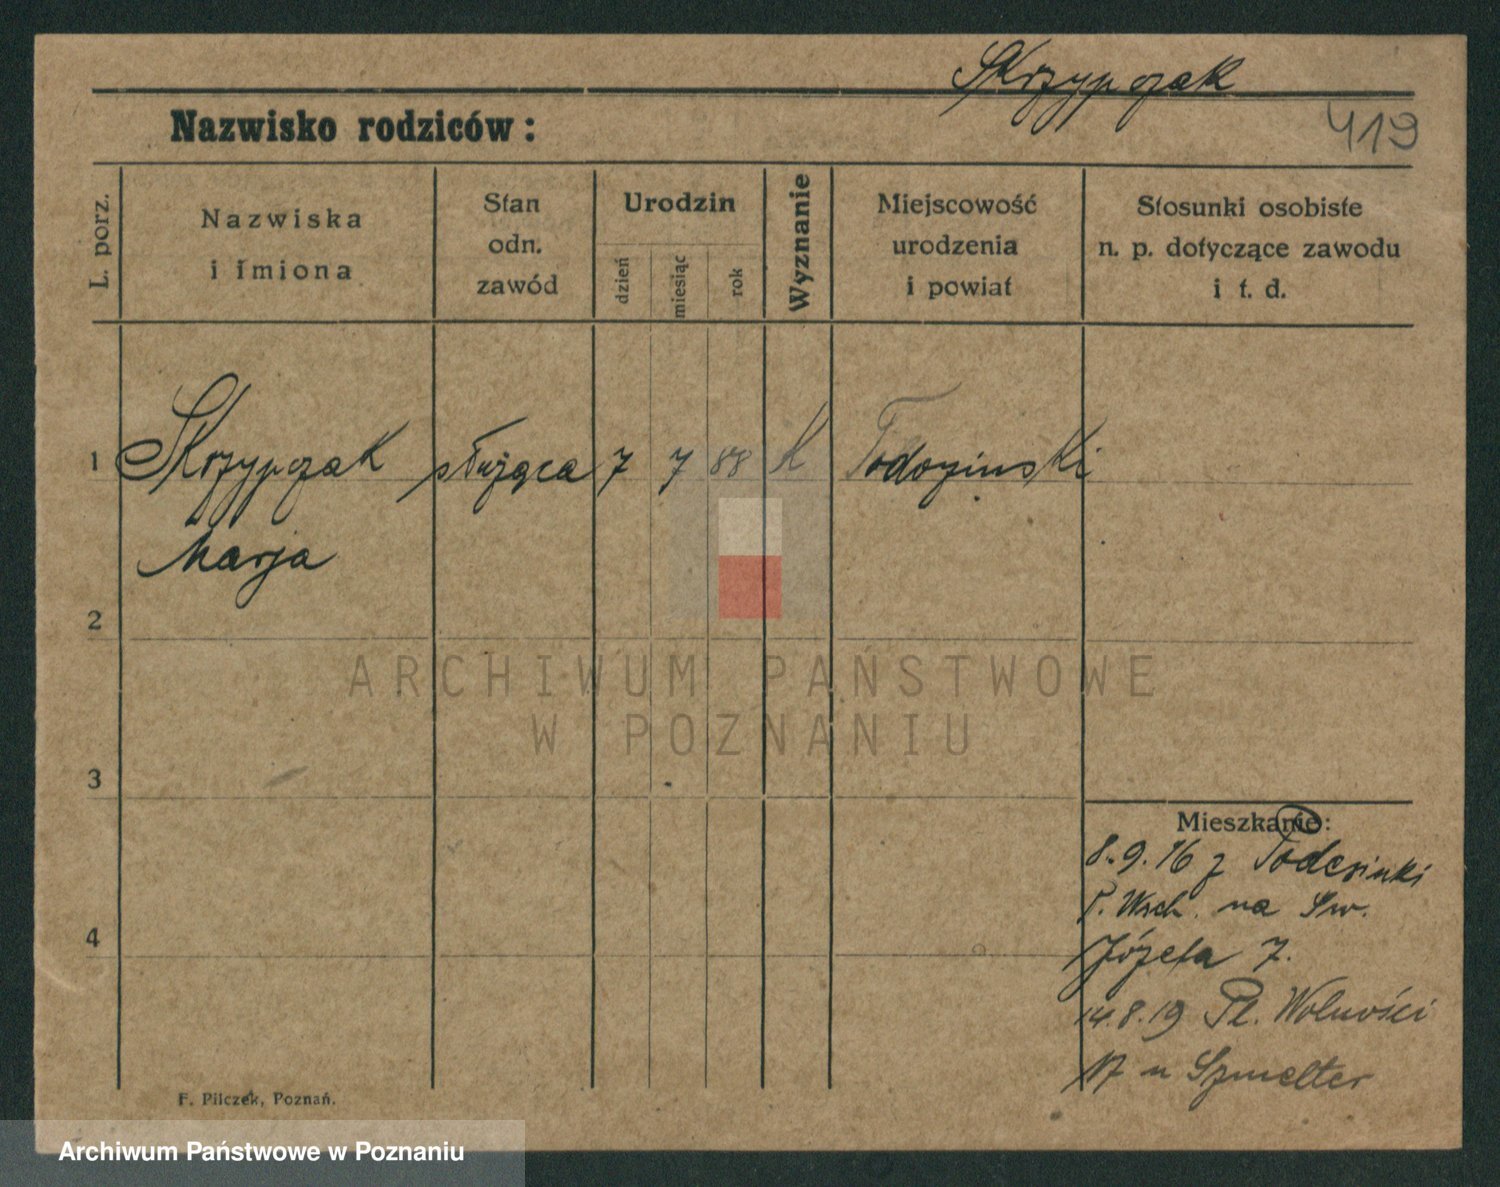 Skrzypczak
Nazwisko rodziców :
419
L. porz.
Nazwiska
i imiona
Stan
odn.
zawód
Urodzin
dzień
miesiąc
rok
Wyznanie
Miejscowość
urodzenia
i powiat
Stosunki osobiste
n. p. dotyczące zawodu
i t. d.
1 Skrzypczak służąca 7 7 88 k
Marja
2
3
4
Mieszkanie:
8.9.16 z
P. Wsch. na Św.
Józefa 7.
14.8.19 Pl. Wolności
17 u Szmelter
F. Pilczek, Poznań.
ARCHIWUM PAŃSTWOWE
W POZNANIU
Archiwum Państwowe w Poznaniu